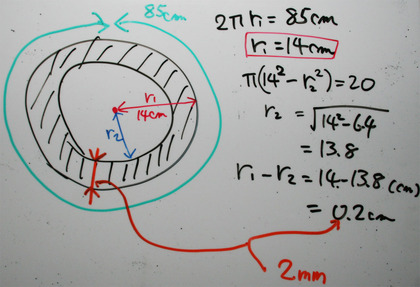 85cm
r₁
14cm
r₂
2πr₁=85cm
r₁=14cm
π(14²-r₂²)=20
r₂=√14²-6.4
=13.8
r₁-r₂=14-13.8(cm)
=0.2cm
2mm